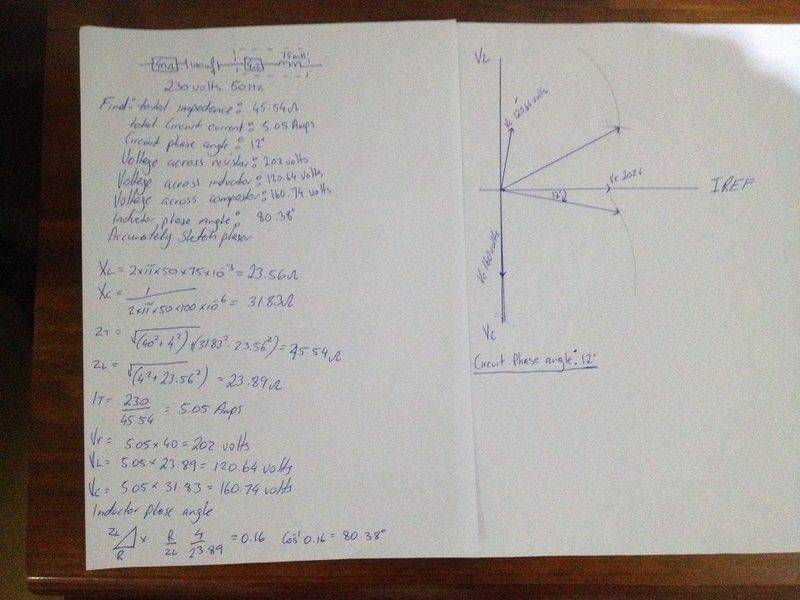 40Ω 100uf 4Ω 75mH
230 volts 50Hz
Find: total impedence: 45.54Ω
total circuit current: 5.05 Amps
Circuit phase angle: 12°
Voltage across resistor: 202 volts
Voltage across inductor: 120.64 volts
Voltage across compastor: 160.74 volts
Inductor phase Angle: 80.38°
Accurately sketch phasor
XL = 2×π×50×75×10⁻³ = 23.56Ω
XC = 1 / 2×π×50×100×10⁻⁶ = 31.83Ω
ZT = √(40²+4²)+(31.83²-23.56²) = 45.54Ω
ZL = √(4²+23.56²) = 23.89Ω
IT = 230 / 45.54 = 5.05 Amps
Vr = 5.05×40 = 202 volts
VL = 5.05×23.89 = 120.64 volts
VC = 5.05×31.83 = 160.74 volts
Inductor phase angle
ZL R × R/ZL 4/23.89 = 0.16 Cos⁻¹ 0.16 = 80.38°
VL
VL 120.64 volts
Vr 202v
IREF
12°
VC 160 volts
VC
Circuit Phase angle: 12°